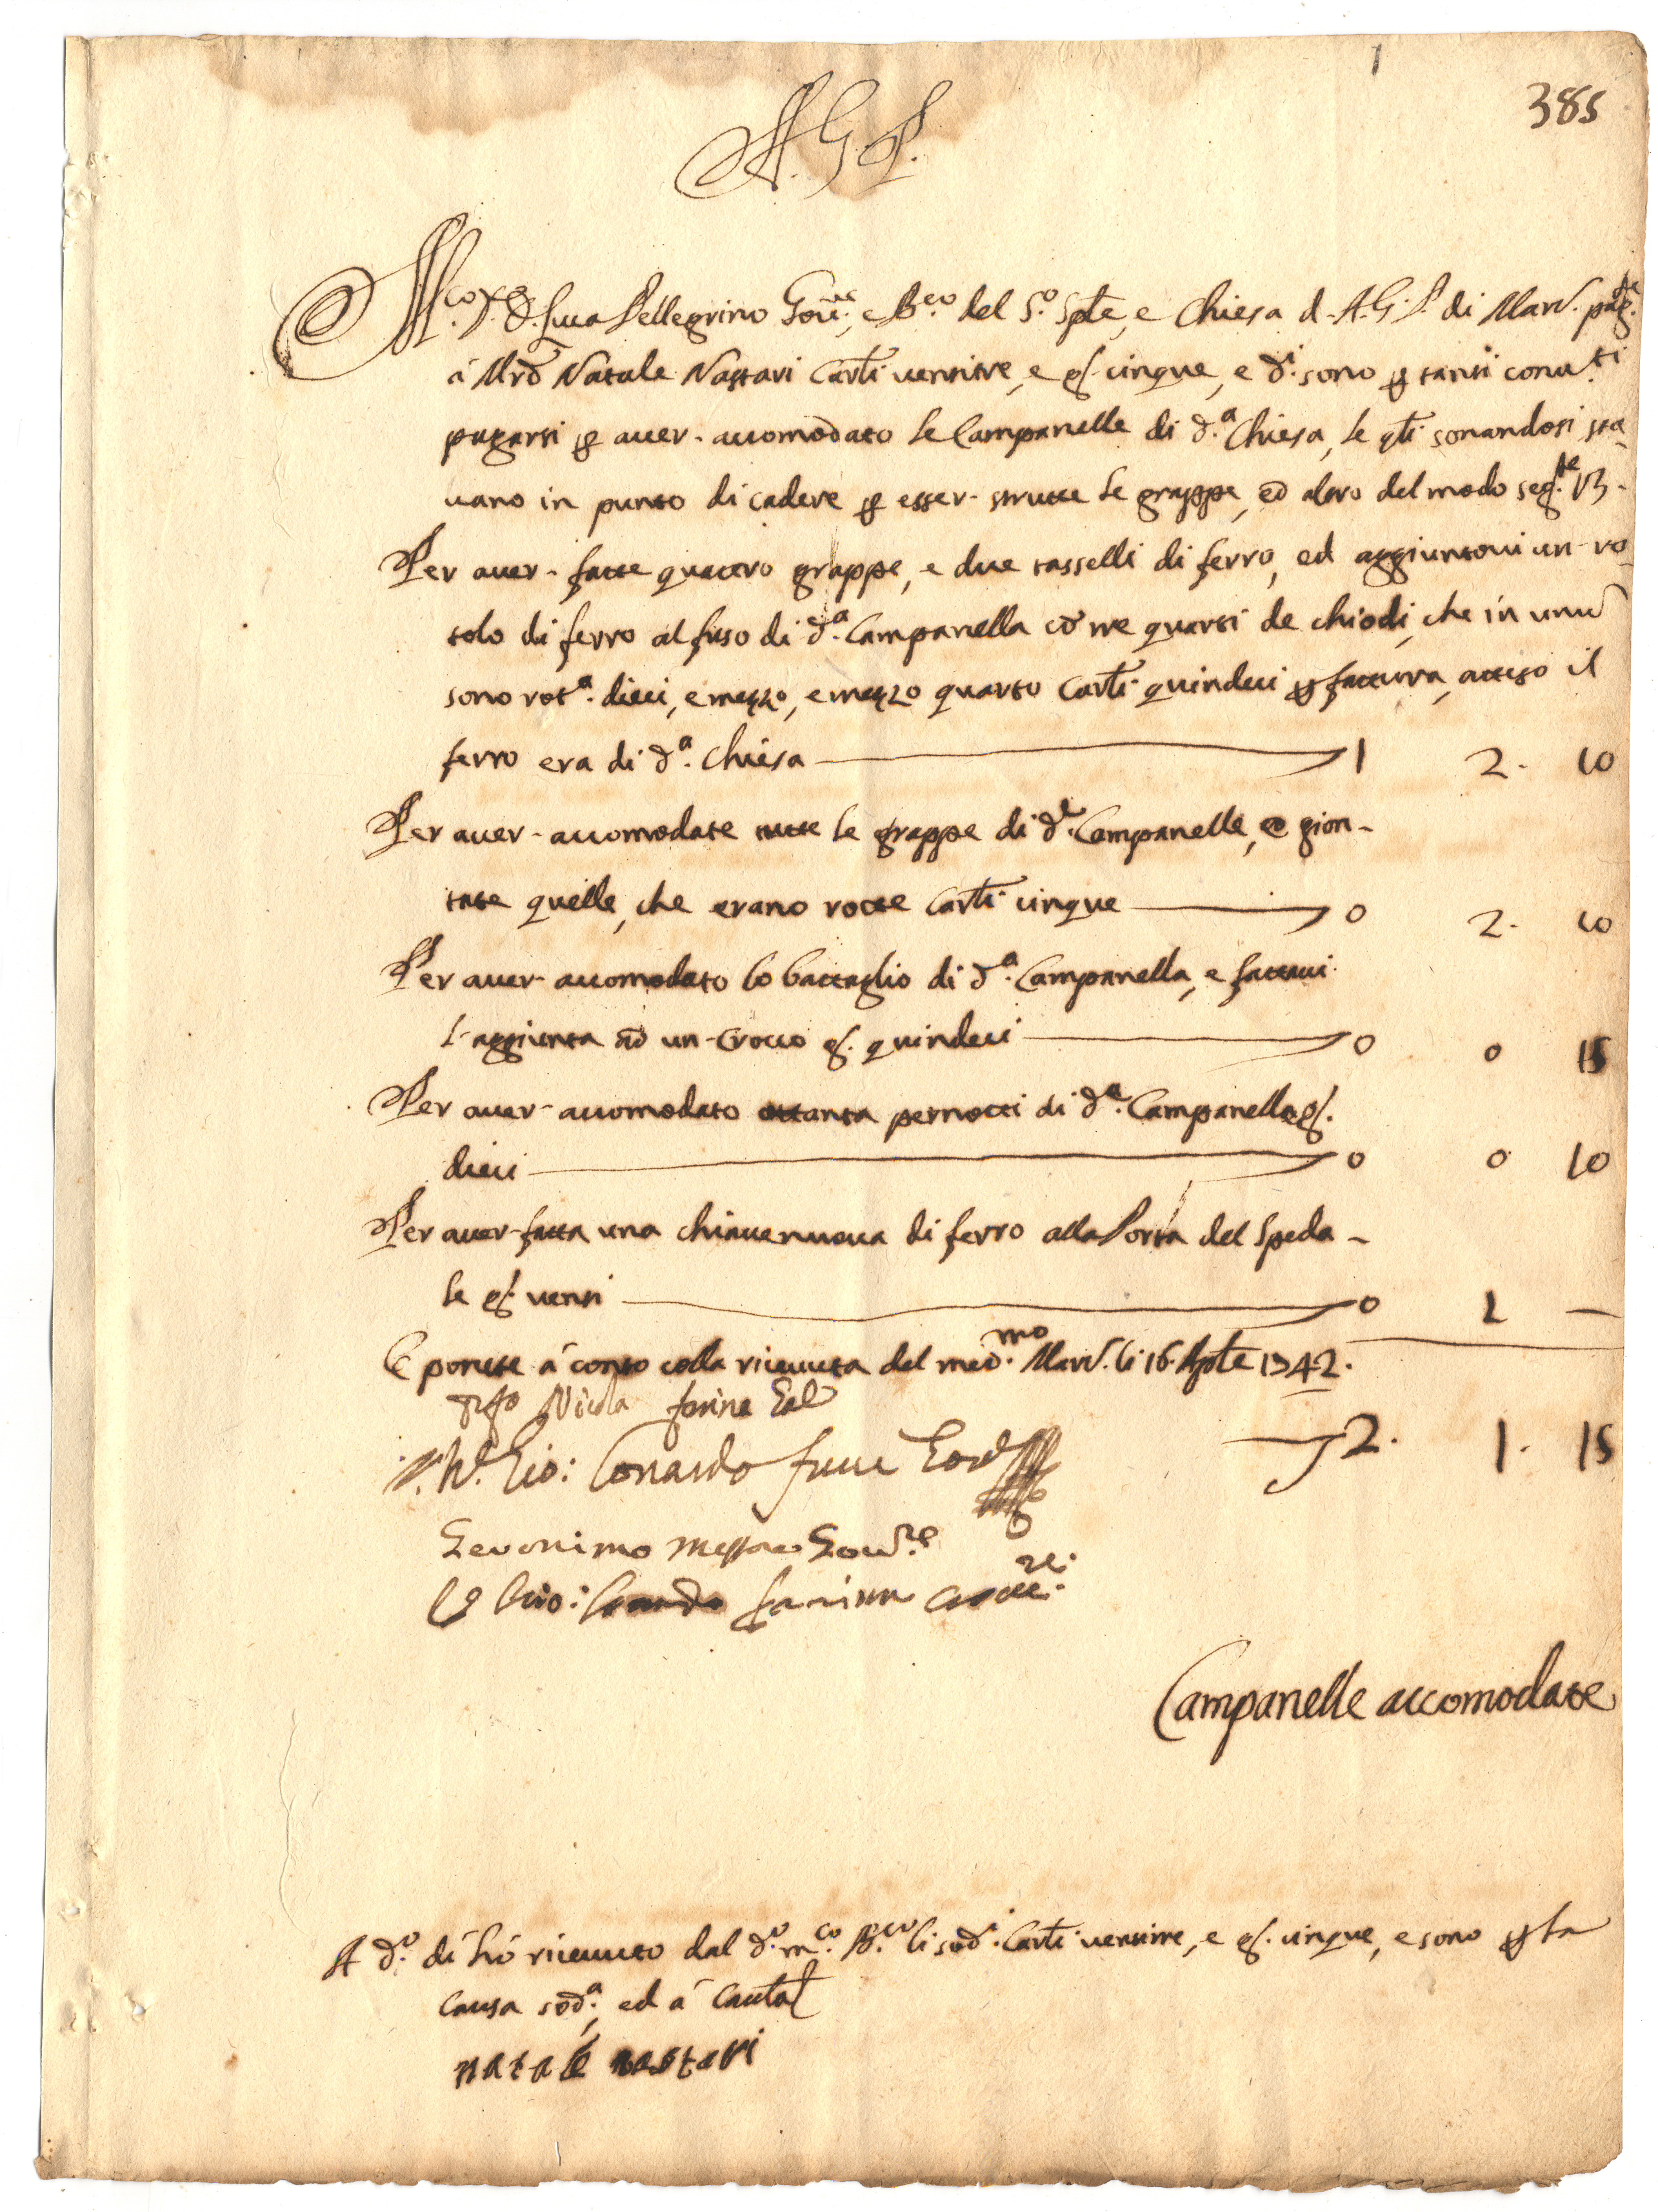 1
385
A. G. P.
M.co S.r D. Luca Pellegrino Gov.re, e B.co del S.o Sple, e Chiesa d. A. G. P. di Mard. pag.te
à Mrõ Natale Nastari Carli ventitre, e g. cinque, e d.i sono p tanti conv.ti
pagarsi p aver- accomodato le Campanelle di d.a Chiesa, le qli sonandosi sta-
vano in punto di cadere p esser- strutte le grappe, ed altro del modo seg.te V3.
Per aver- fatte quattro grappe, e due tasselli di ferro, ed aggiuntovi un- ro-
tolo di ferro al fuso di d.a Campanella cõ tre quarti de chiodi, che in unũ
sono rot.a dieci, e mezzo, e mezzo quarto Carli quindeci p fattura, atteso il
ferro era di d.a Chiesa 1 2. 10
Per aver- accomodate tutte le grappe di d.e Campanelle, e gion-
tate quelle, che erano rotte Carli cinque 0 2. 10
Per aver- accomodato lo battaglio di d.a Campanella, e fattavi
l'aggiunta ad un- Crocco g. quindeci 0 0 15
Per aver- accomodato ottanta pernotti di d.a Campanella g.
dieci 0 0 10
Per aver- fatta una chiave nuova di ferro alla Porta del Speda-
le g. venti 0 1 —
E ponete à conto colla ricevuta del med.mo Mard. li 16. Aple 1742.
Nicola farina
2. 1. 15
Gio: Lonardo
Geronimo Gov.re
Gio: farina
Campanelle accomodate
A d.o dì hò ricevuto dal d.o m.co B.co li sod.i Carli ventitre, e g. cinque, e sono p la
causa sod.a, ed à cautal
natale nastari